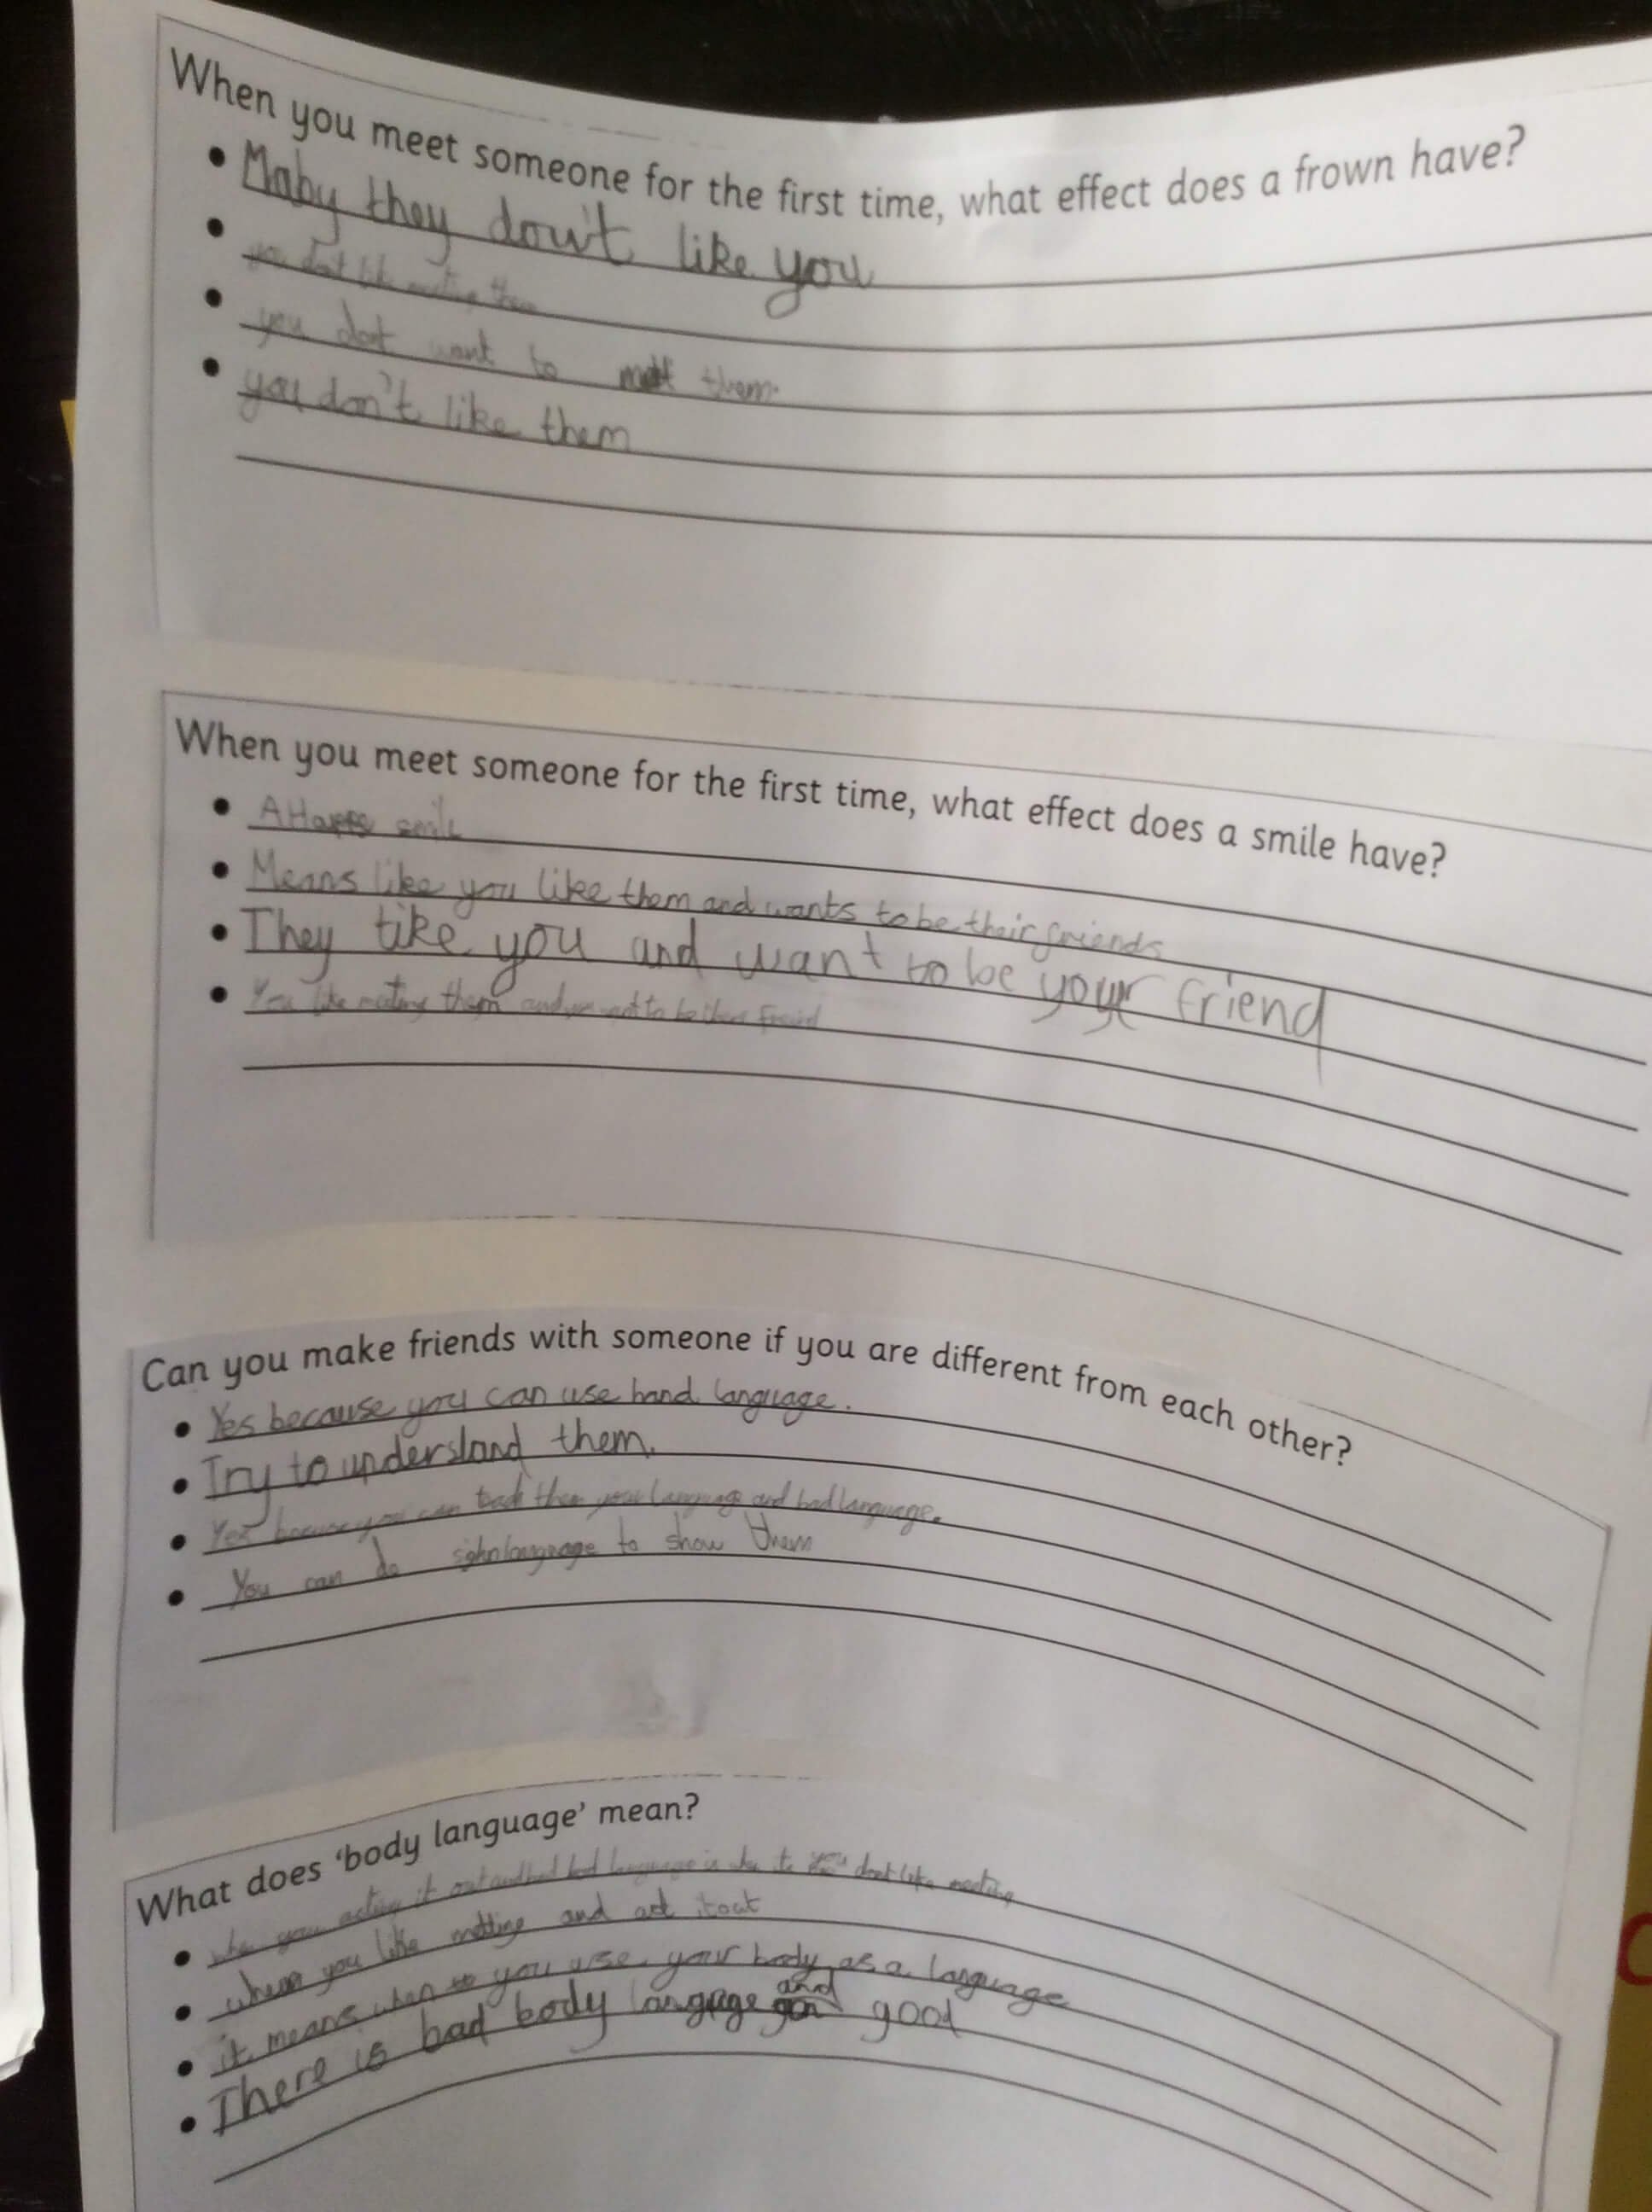 When you meet someone for the first time, what effect does a frown have?
• Maby they don't like you
• you dont like meeting them
• you dont want to them
• you don't like them
When you meet someone for the first time, what effect does a smile have?
• A Happy smile
• Means like you like them and wants to be their friends
• They like you and want to be your friend
• You like meeting them and want to be
When you meet someone for the first time, what effect does a smile have?
Can you make friends with someone if you are different from each other?
• Yes because you can use hand language.
• Try to understand them.
• Yes you can them your and language.
• You can do language to show them
What does 'body language' mean?
• you acting it out language is dont like meeting
• when you like and act it out
• it means when you use your body as a language
• There is bad body langage and good